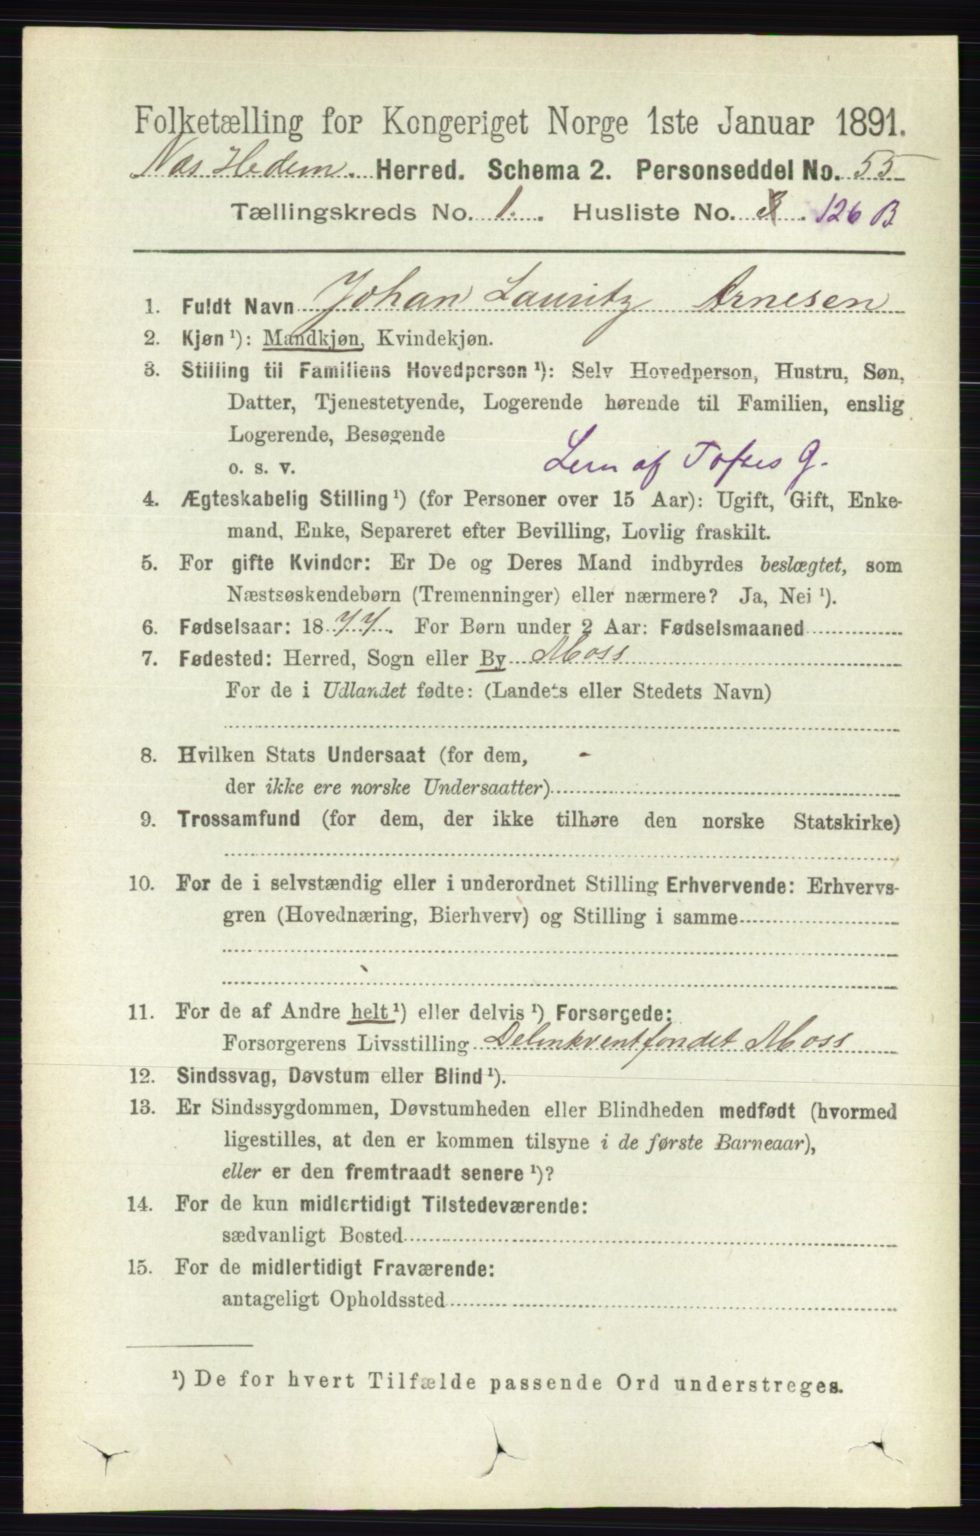 Folketælling for Kongeriget Norge 1ste Januar 1891.
Næs Hedem. Herred. Schema 2. Personseddel No. 55
Tællingskreds No. 1. Husliste No. 3. 126 B
1. Fuldt Navn Johan Lauritz Arnesen
2. Kjøn ¹): Mandkjøn, Kvindekjøn.
3. Stilling til Familiens Hovedperson ¹): Selv Hovedperson, Hustru, Søn,
Datter, Tjenestetyende, Logerende hørende til Familien, enslig
Logerende, Besøgende
o. s. v. Lem af Toftes G.
4. Ægteskabelig Stilling ¹) (for Personer over 15 Aar): Ugift, Gift, Enke-
mand, Enke, Separeret efter Bevilling, Lovlig fraskilt.
5. For gifte Kvinder: Er De og Deres Mand indbyrdes beslægtet, som
Næstsøskendebørn (Tremenninger) eller nærmere? Ja, Nei ¹).
6. Fødselsaar: 1877. For Børn under 2 Aar: Fødselsmaaned
7. Fødested: Herred, Sogn eller By Moss
For de i Udlandet fødte: (Landets eller Stedets Navn)
8. Hvilken Stats Undersaat (for dem, -
der ikke ere norske Undersaatter)
9. Trossamfund (for dem, der ikke tilhøre den norske Statskirke)
10. For de i selvstændig eller i underordnet Stilling Erhvervende: Erhvervs-
gren (Hovednæring, Bierhverv) og Stilling i samme
11. For de af Andre helt ¹) eller delvis ¹) Forsørgede:
Forsørgerens Livsstilling Delinkventfondet Moss
12. Sindssvag, Døvstum eller Blind ¹).
13. Er Sindssygdommen, Døvstumheden eller Blindheden medfødt (hvormed
ligestilles, at den er kommen tilsyne i de første Barneaar),
eller er den fremtraadt senere ¹)?
14. For de kun midlertidigt Tilstedeværende:
sædvanligt Bosted
15. For de midlertidigt Fraværende:
antageligt Opholdssted
¹) De for hvert Tilfælde passende Ord understreges.